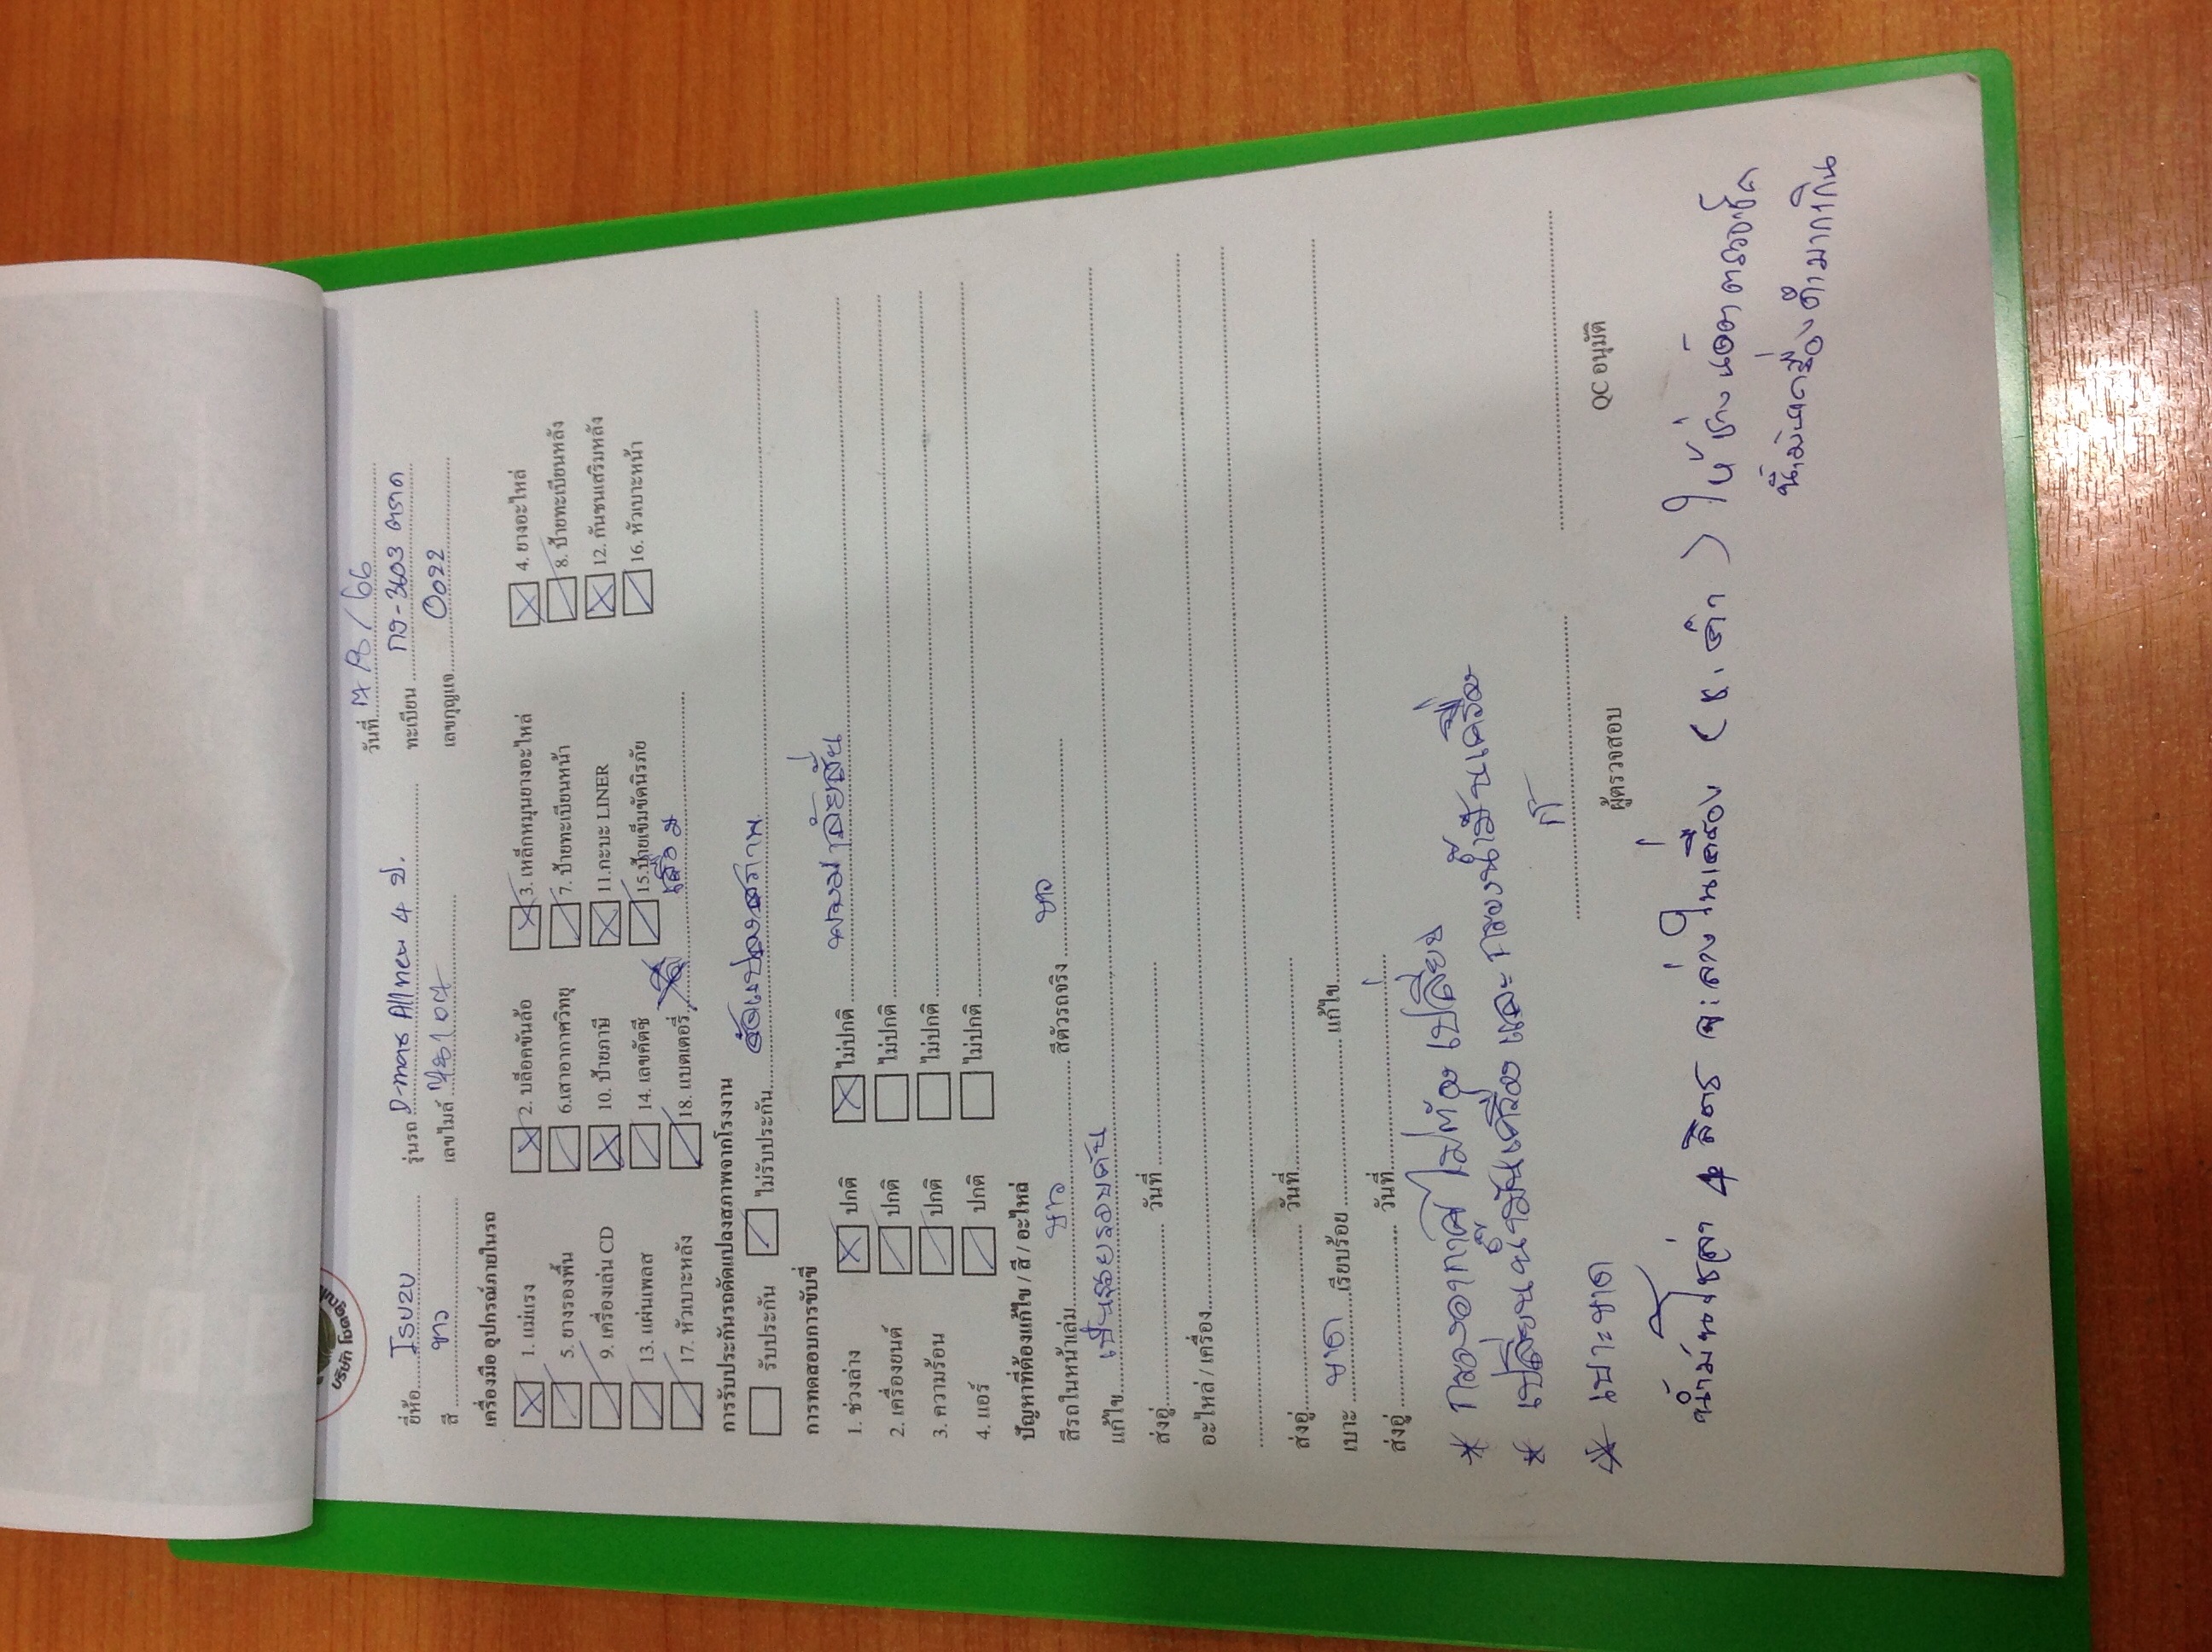 บริษัท โชคดี
วันที่ 17/8/66
ยี่ห้อ ISUZU รุ่นรถ D-max All new 4 ป. ทะเบียน กง-3603 ตราด
สี ขาว เลขไมล์ กุญแจ 0022
เครื่องมือ อุปกรณ์ภายในรถ
1. แม่แรง 2. บล็อคขันล้อ 3. เหล็กหมุนยางอะไหล่ 4. ยางอะไหล่
5. ยางรองพื้น 6.เสาอากาศวิทยุ 7. ป้ายทะเบียนหน้า 8. ป้ายทะเบียนหลัง
9. เครื่องเล่น CD 10. ป้ายภาษี 11.กะบะ LINER 12. กันชนเสริมหลัง
13. แผ่นเพลส 14. เลขคัตซี 15.ป้ายเข็มขัดนิรภัย 16. หัวเบาะหน้า
17. หัวเบาะหลัง 18. แบตเตอรี่ เสื่อม
การรับประกันรถดัดแปลงสภาพจากโรงงาน
รับประกัน ไม่รับประกัน ดัดแปลงสภาพ
การทดสอบการขับขี่
1. ช่วงล่าง ปกติ ไม่ปกติ พวงมาลัยสั่น
2. เครื่องยนต์ ปกติ ไม่ปกติ
3. ความร้อน ปกติ ไม่ปกติ
4. แอร์ ปกติ ไม่ปกติ
ปัญหาที่ต้องแก้ไข / สี / อะไหล่
สีรถในหน้าเล่ม ขาว สีตัวรถจริง ขาว
แก้ไข เป็นรอยรอบคัน
ส่งอู่ วันที่
อะไหล่ / เครื่อง
ส่งอู่ วันที่
เบาะ ขาด เรียบร้อย แก้ไข
ส่งอู่ วันที่
* กรองอากาศ ไม่ต้อง เปลี่ยน
* เปลี่ยนน้ำมันเครื่อง และ กรองน้ำมันเครื่อง
* เบาะขาด
ผู้ตรวจสอบ QC อนุมัติ
4 ลิตร จะล่างในเครื่อง (ช. ดำ) ให้ช่างน้อตตรวจเช็ค
น้ำมันเครื่องดำมากเกิน